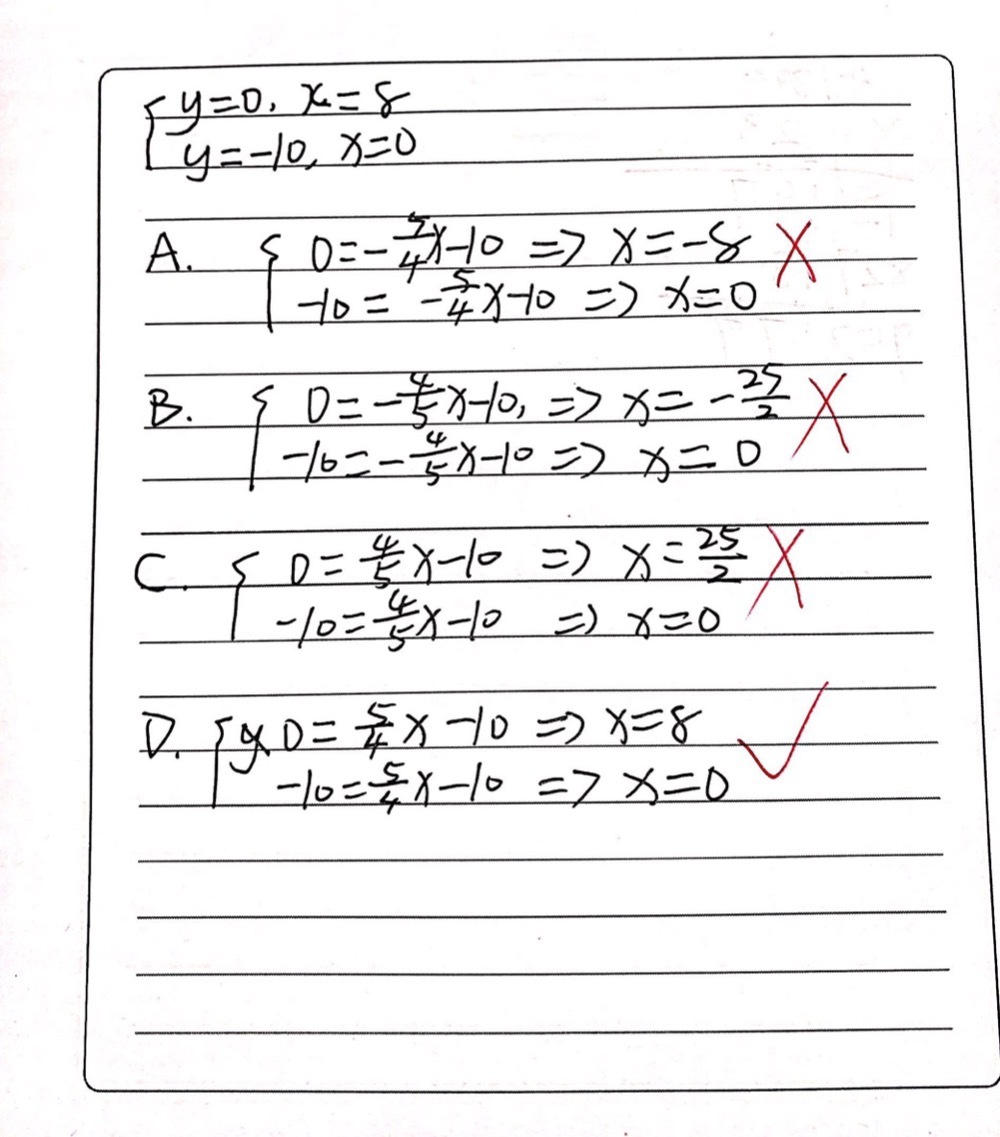 { y=0, x=8
y=-10, x=0
A. { 0=-5/4x-10 => x=-8 ✗
-10= -5/4x-10 => x=0
B. { 0=-4/5x-10, => x=-25/2 ✗
-10=-4/5x-10 => x=0
C. { 0=4/5x-10 => x=25/2 ✗
-10=4/5x-10 => x=0
D. { 0=5/4x-10 => x=8 ✓
-10=5/4x-10 => x=0